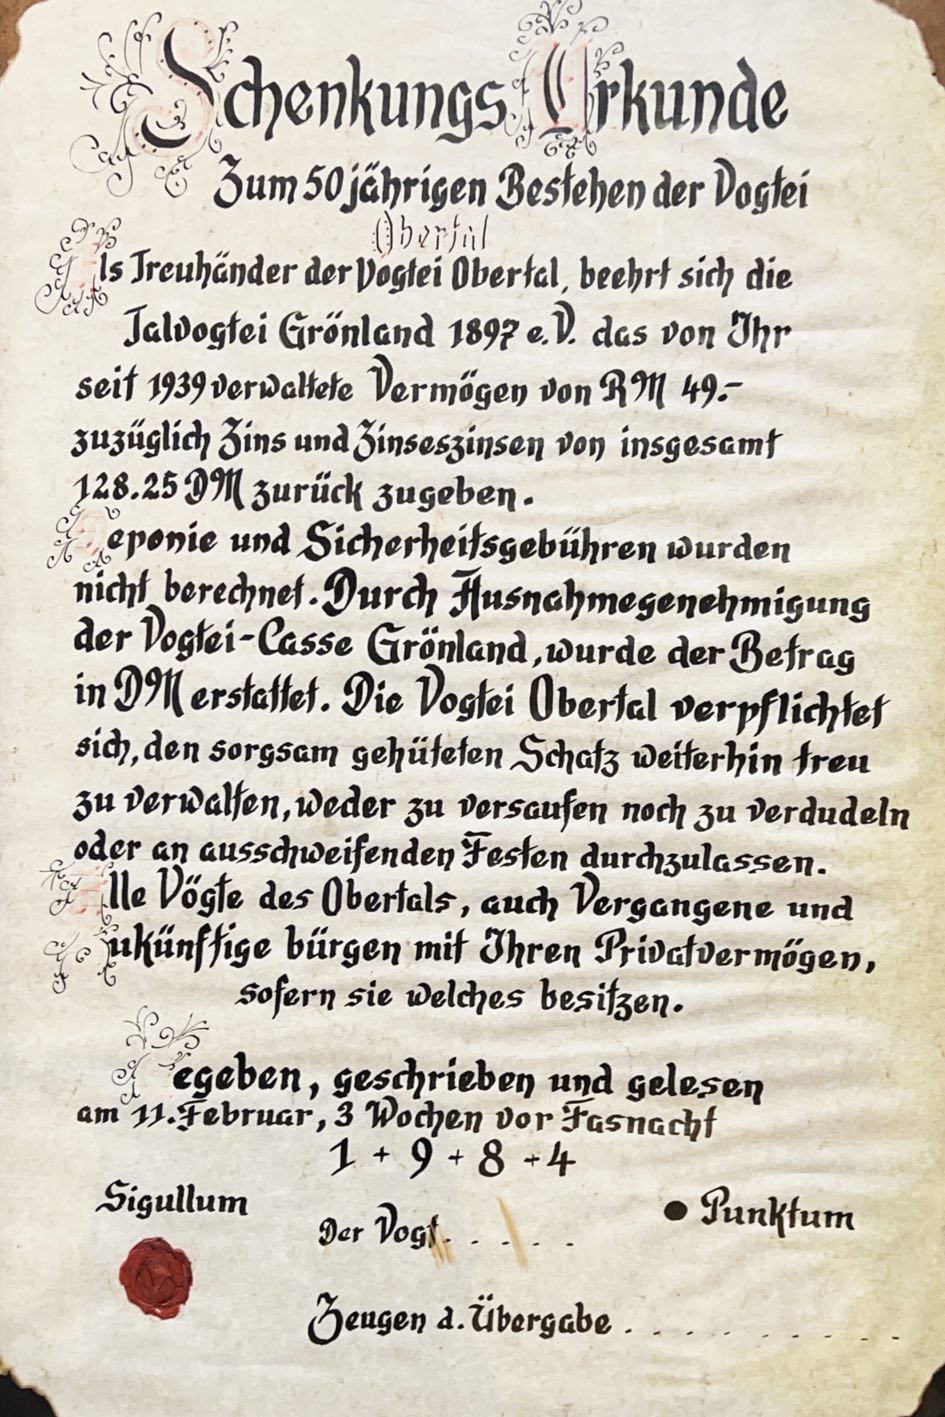 Schenkungs Urkunde
Zum 50 jährigen Bestehen der Vogtei
Obertal
Als Treuhänder der Vogtei Obertal, beehrt sich die
Talvogtei Grönland 1897 e.V. das von Ihr
seit 1939 verwaltete Vermögen von RM 49.-
zuzüglich Zins und Zinseszinsen von insgesamt
128.25 DM zurück zugeben.
Deponie und Sicherheitsgebühren wurden
nicht berechnet. Durch Ausnahmegenehmigung
der Vogtei-Casse Grönland, wurde der Betrag
in DM erstattet. Die Vogtei Obertal verpflichtet
sich, den sorgsam gehüteten Schatz weiterhin treu
zu verwalten, weder zu versaufen noch zu verdudeln
oder an ausschweifenden Festen durchzulassen.
Alle Vögte des Obertals, auch Vergangene und
Zukünftige bürgen mit Ihren Privatvermögen,
sofern sie welches besitzen.
Gegeben, geschrieben und gelesen
am 11. Februar, 3 Wochen vor Fasnacht
1 + 9 + 8 + 4
Sigullum
● Punktum
Der Vogt . . . . .
Zeugen d. Übergabe . . . . . . . . .